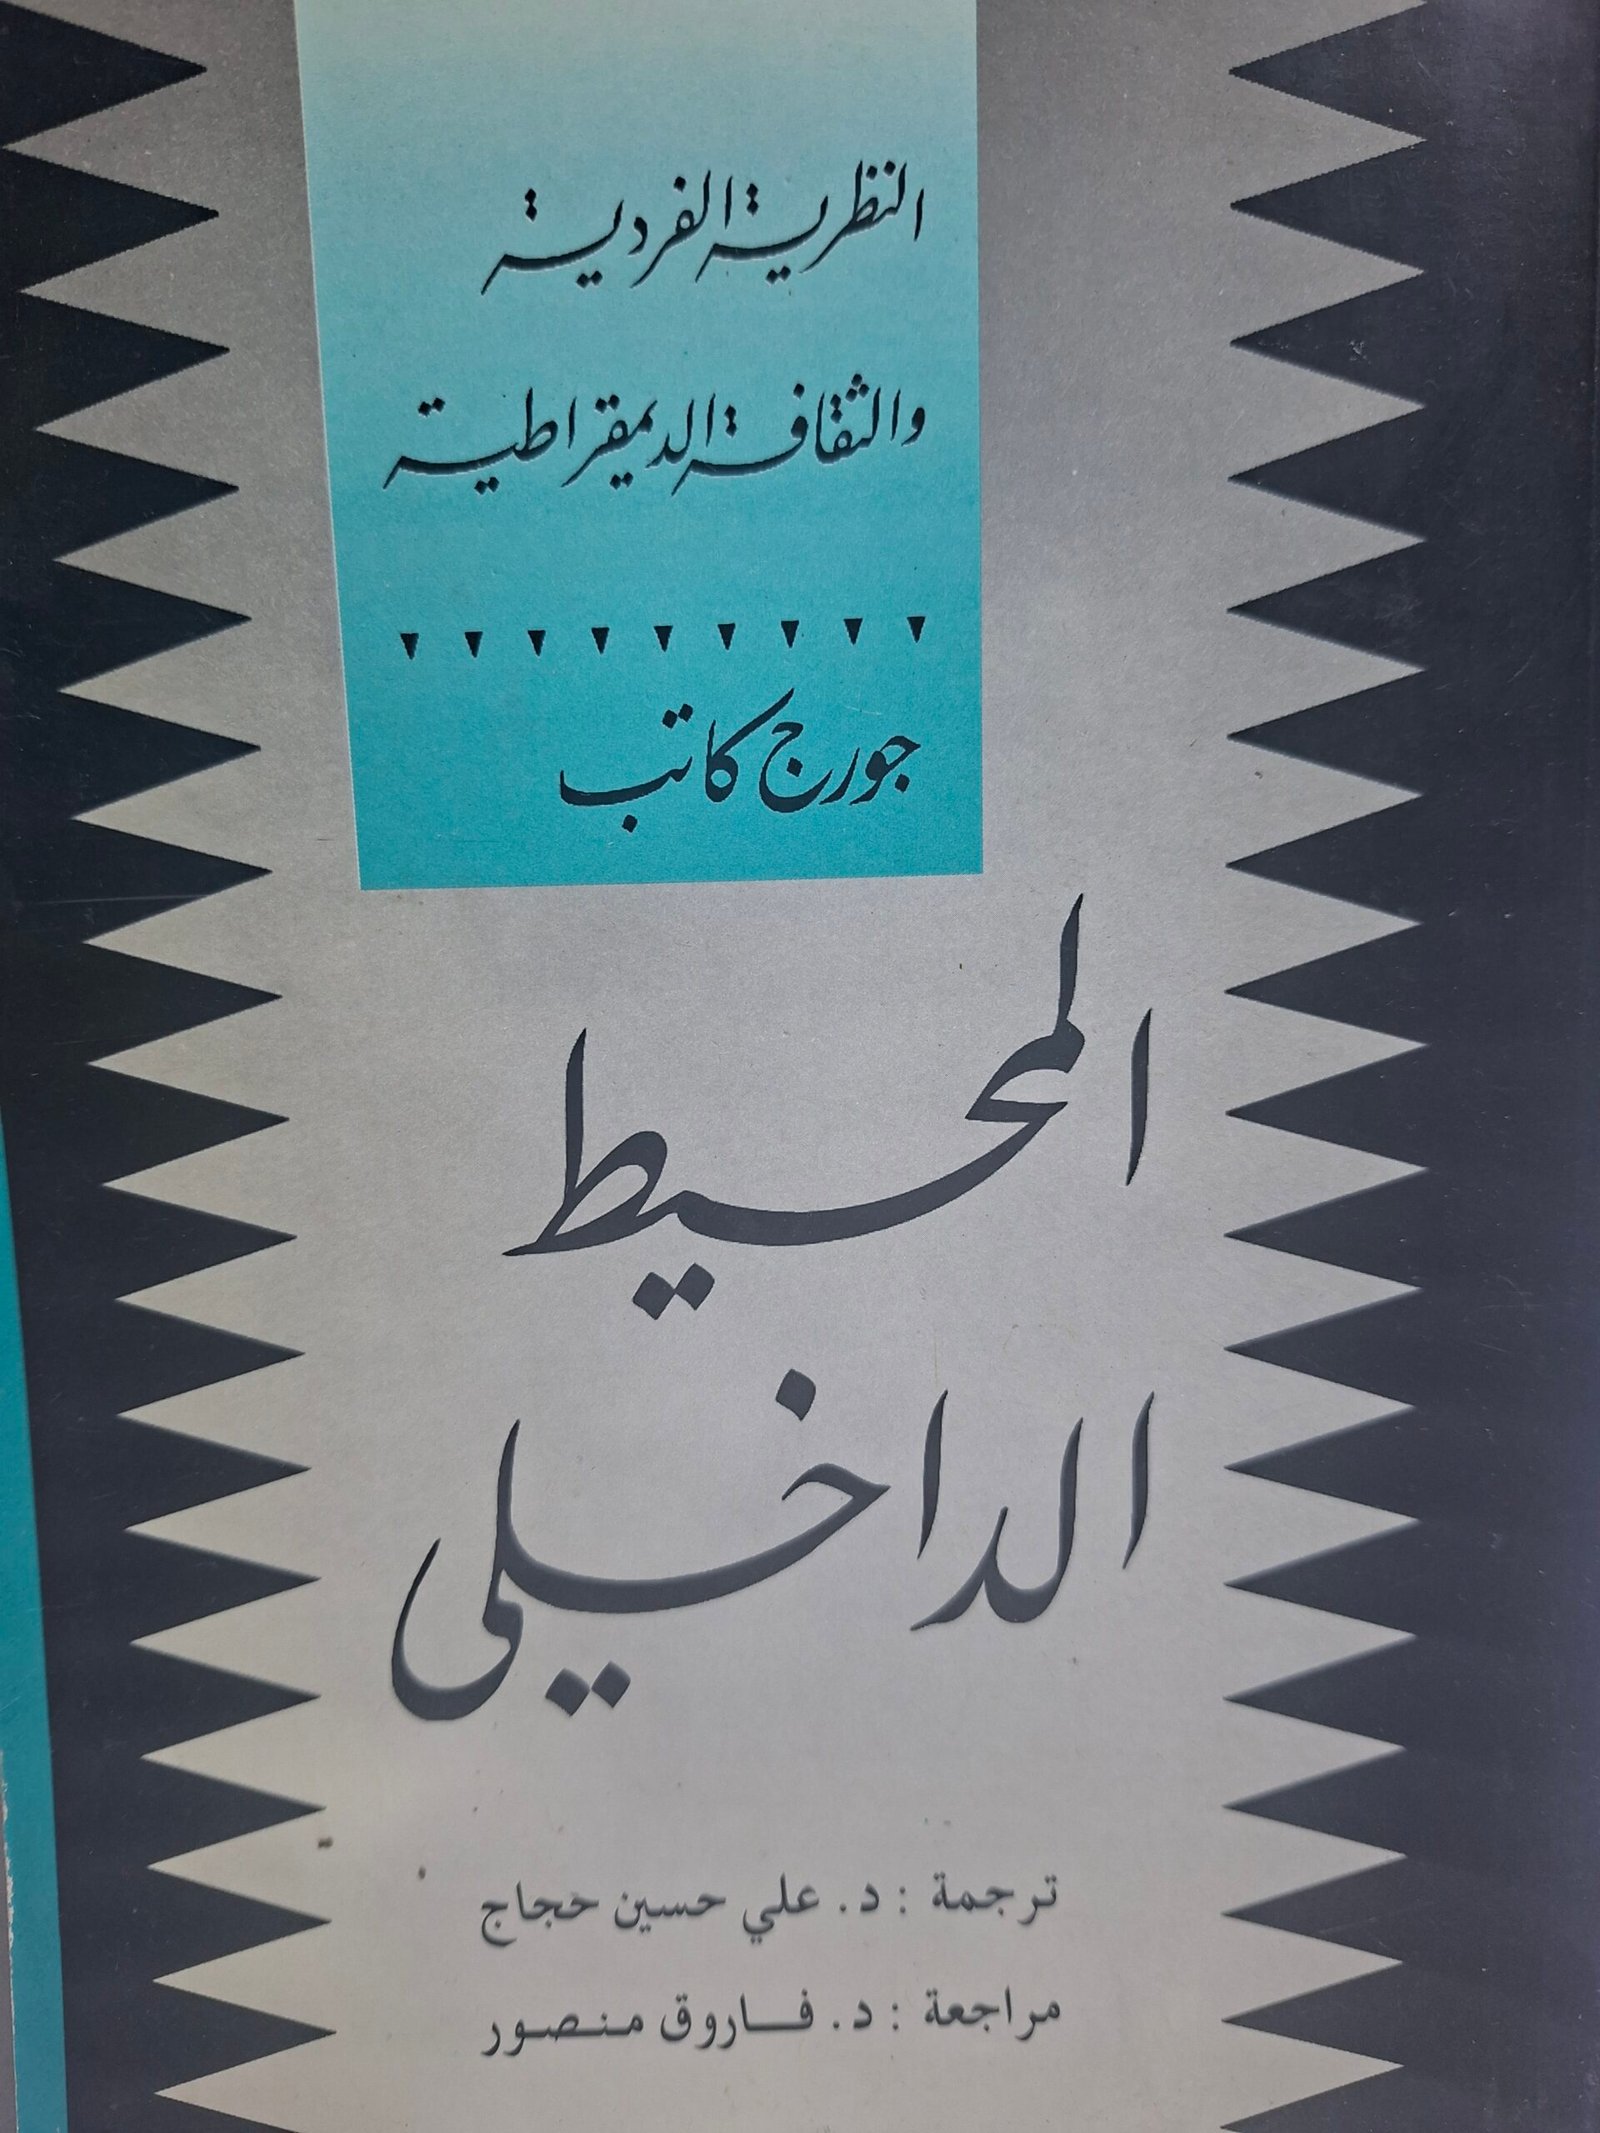 النظرية الفردية
والثقافة الديمقراطية
جورج كاتب
المحيط
الداخلي
ترجمة : د. علي حسين حجاج
مراجعة : د. فاروق منصور